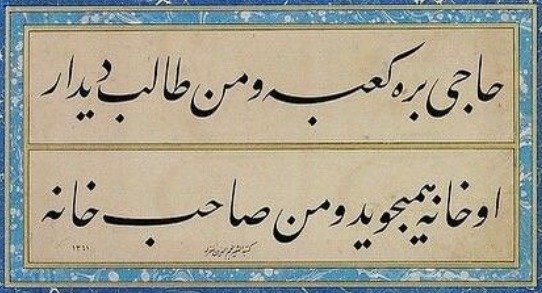 حاجی بره کعبه و من طالب دیدار
او خانه همیجوید و من صاحب خانه
۱۳۶۱